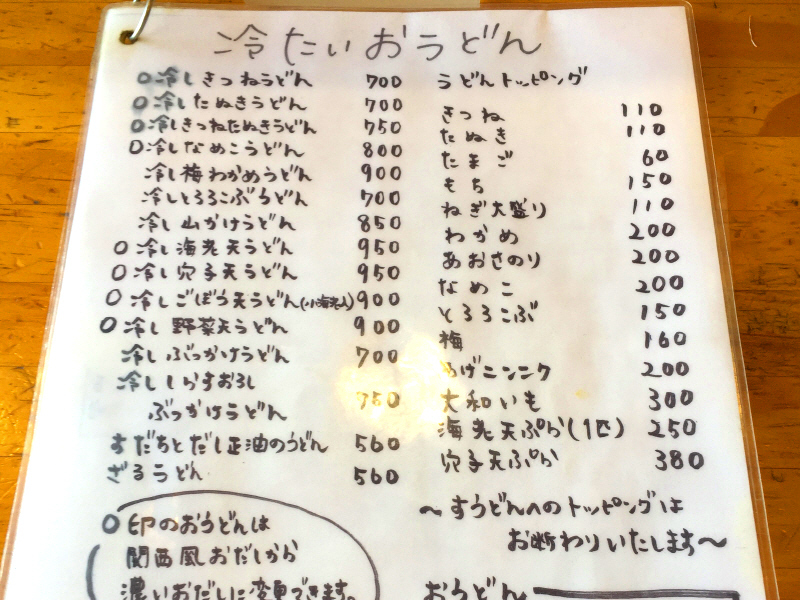 冷たいおうどん
○冷しきつねうどん 700
○冷したぬきうどん 700
○冷しきつねたぬきうどん 750
○冷しなめこうどん 800
冷し梅わかめうどん 900
冷しとろろこぶうどん 700
冷し山かけうどん 850
○冷し海老天うどん 950
○冷し穴子天うどん 950
○冷しごぼう天うどん(小海老入) 900
○冷し野菜天うどん 900
冷しぶっかけうどん 700
冷ししらすおろし
ぶっかけうどん 750
すだちとだし正油のうどん 560
ざるうどん 560
○印のおうどんは
関西風おだしから
濃いおだしに変更できます。
うどんトッピング
きつね 110
たぬき 110
たまご 60
もち 150
ねぎ大盛り 110
わかめ 200
あおさのり 200
なめこ 200
とろろこぶ 150
梅 160
あげニンニク 200
大和いも 300
海老天ぷら(1匹) 250
穴子天ぷら 380
～すうどんへのトッピングは
お断わりいたします～
おうどん